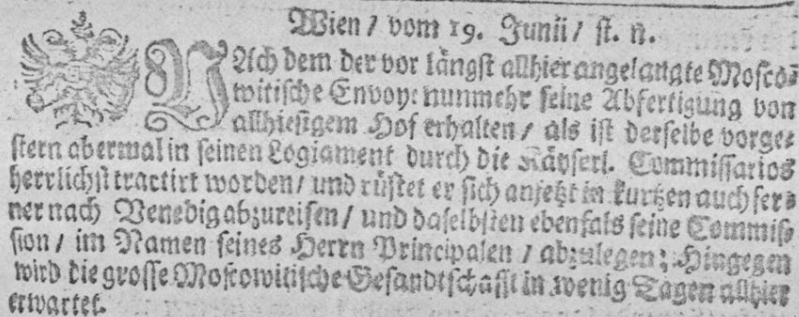 Wien / vom 19. Junii / st. n.
NAch dem der vor längst allhier angelangte Mosco-
witische Envoye nunmehr seine Abfertigung von
allhiesigem Hof erhalten / als ist derselbe vorge-
stern abermal in seinen Logiament durch die Käyserl. Commissarios
herrlichst tractirt worden / und rüstet er sich anjetzt in kurtzen auch fer-
ner nach Venedig abzureisen / und daselbsten ebenfals seine Commis-
sion / im Namen seines Herrn Principalen / abzulegen; Hingegen
wird die grosse Moscowitische Gesandtschafft in wenig Tagen allhier
erwartet.